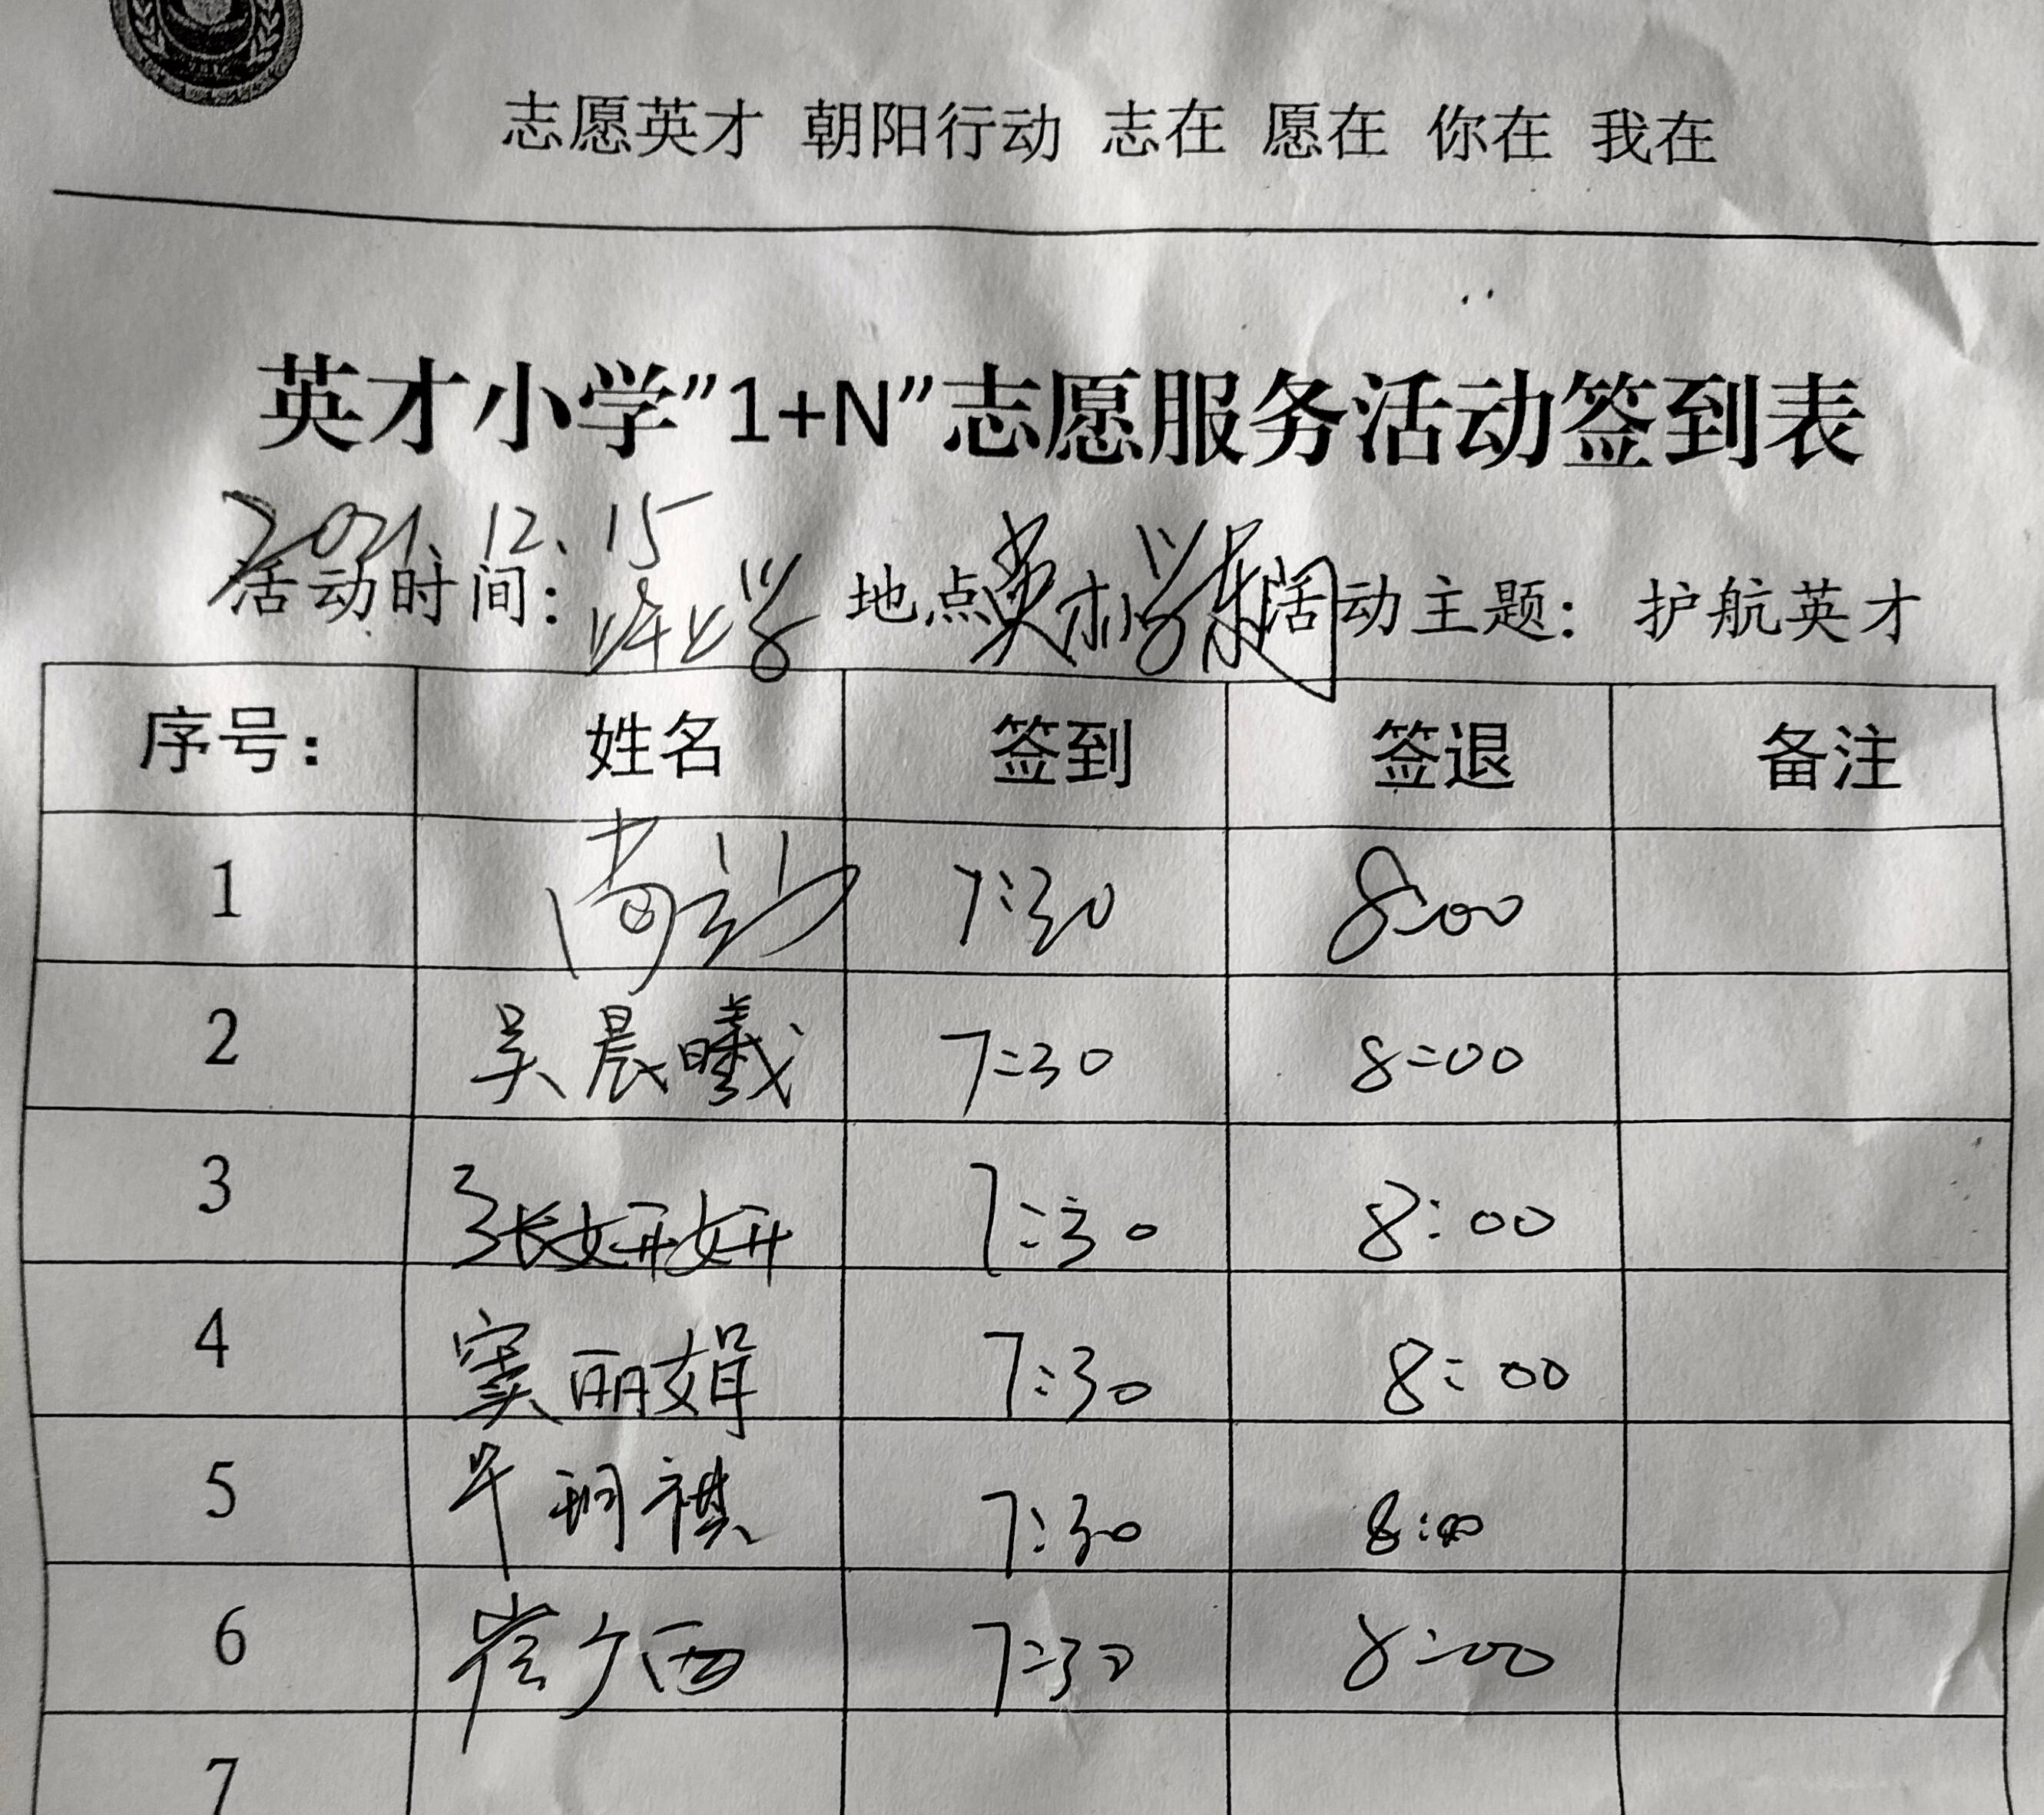 志愿英才 朝阳行动 志在 愿在 你在 我在
英才小学”1+N”志愿服务活动签到表
2021.12.15
活动时间： 地点 英才小学东门 活动主题： 护航英才
序号： 姓名 签到 签退 备注
1 7:30 8:00
2 吴晨曦 7:30 8:00
3 张妍妍 7:30 8:00
4 窦丽娟 7:30 8:00
5 牟珂祺 7:30 8:00
6 崔广西 7:30 8:00
7